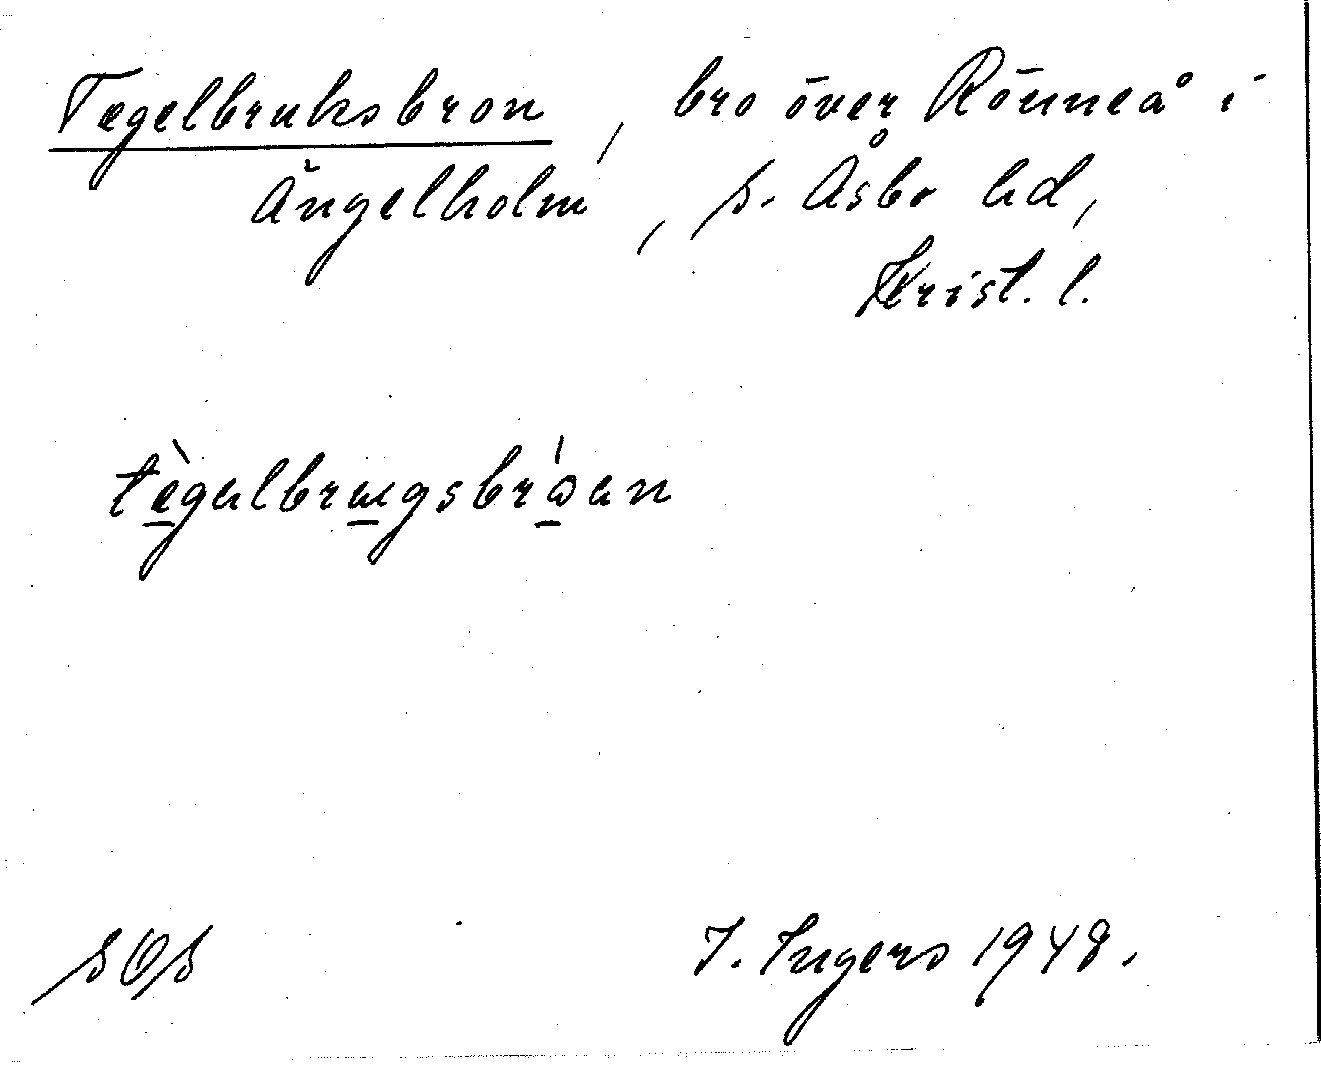 Tegelbruksbron, bro över Rönneå i
Ängelholm, S. Åsbo hd,
Krist. l.
SOS
I. Ingers 1948.